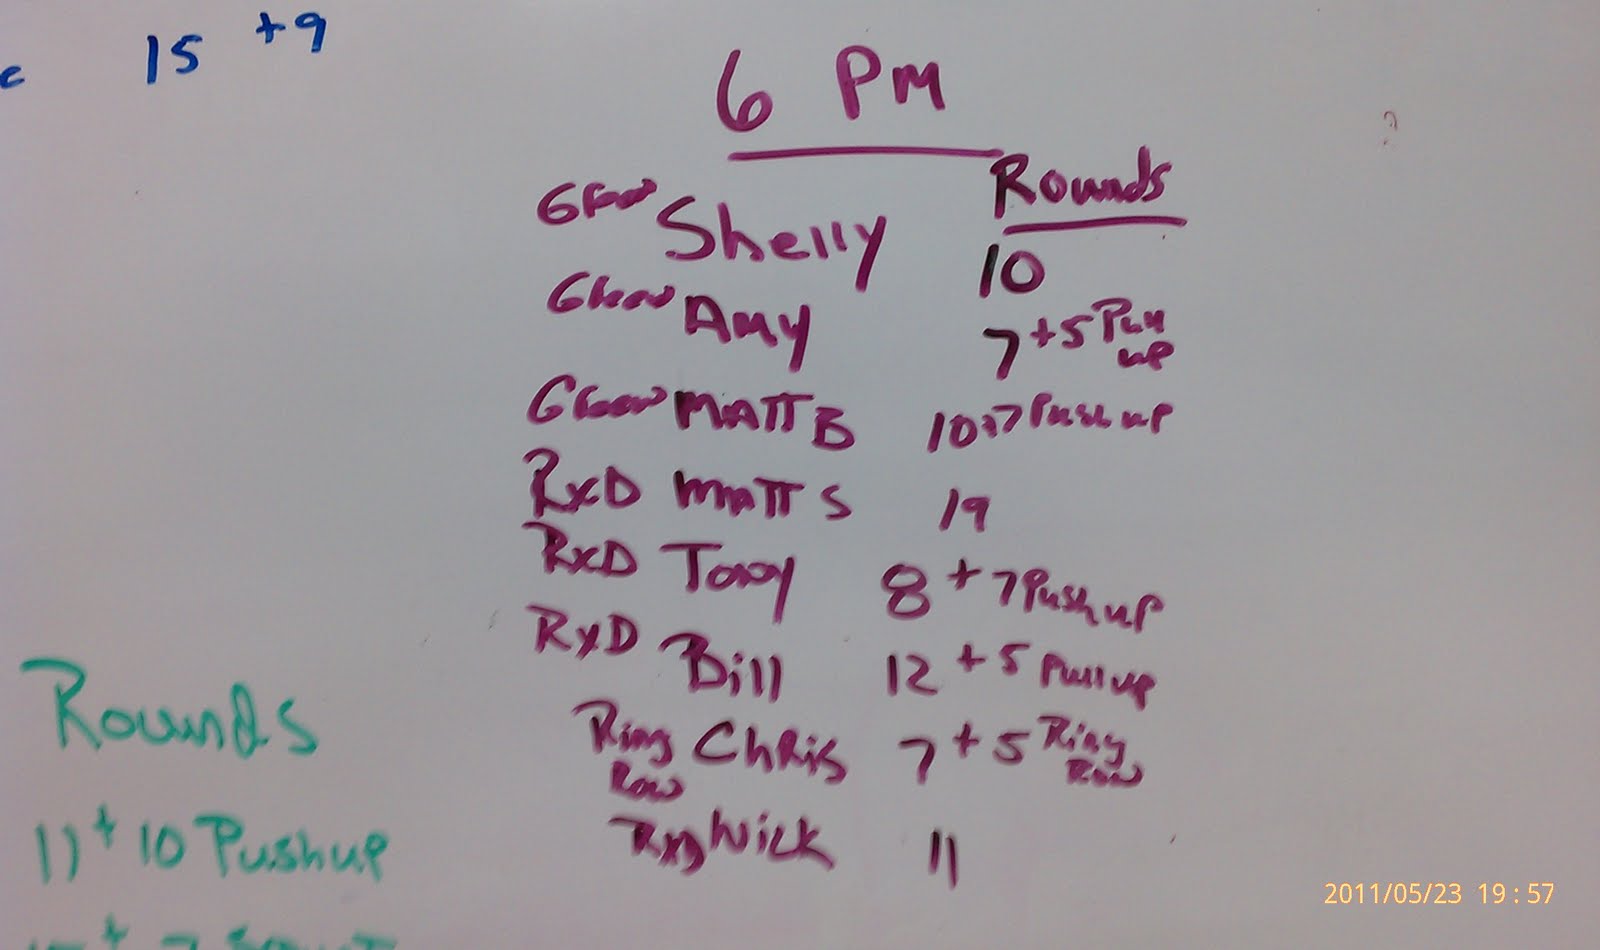 15 +9
6 PM
Rounds
Green Shelly 10
Green Amy 7 +5 Pull up
Green MATT B 10+7 Push up
RxD MATT S 19
RxD Tony 8 + 7 Push up
RxD Bill 12 + 5 Pull up
Ring Row Chris 7 + 5 Ring Row
RxD Nick 11
Rounds
11 + 10 Pushup
2011/05/23 19:57